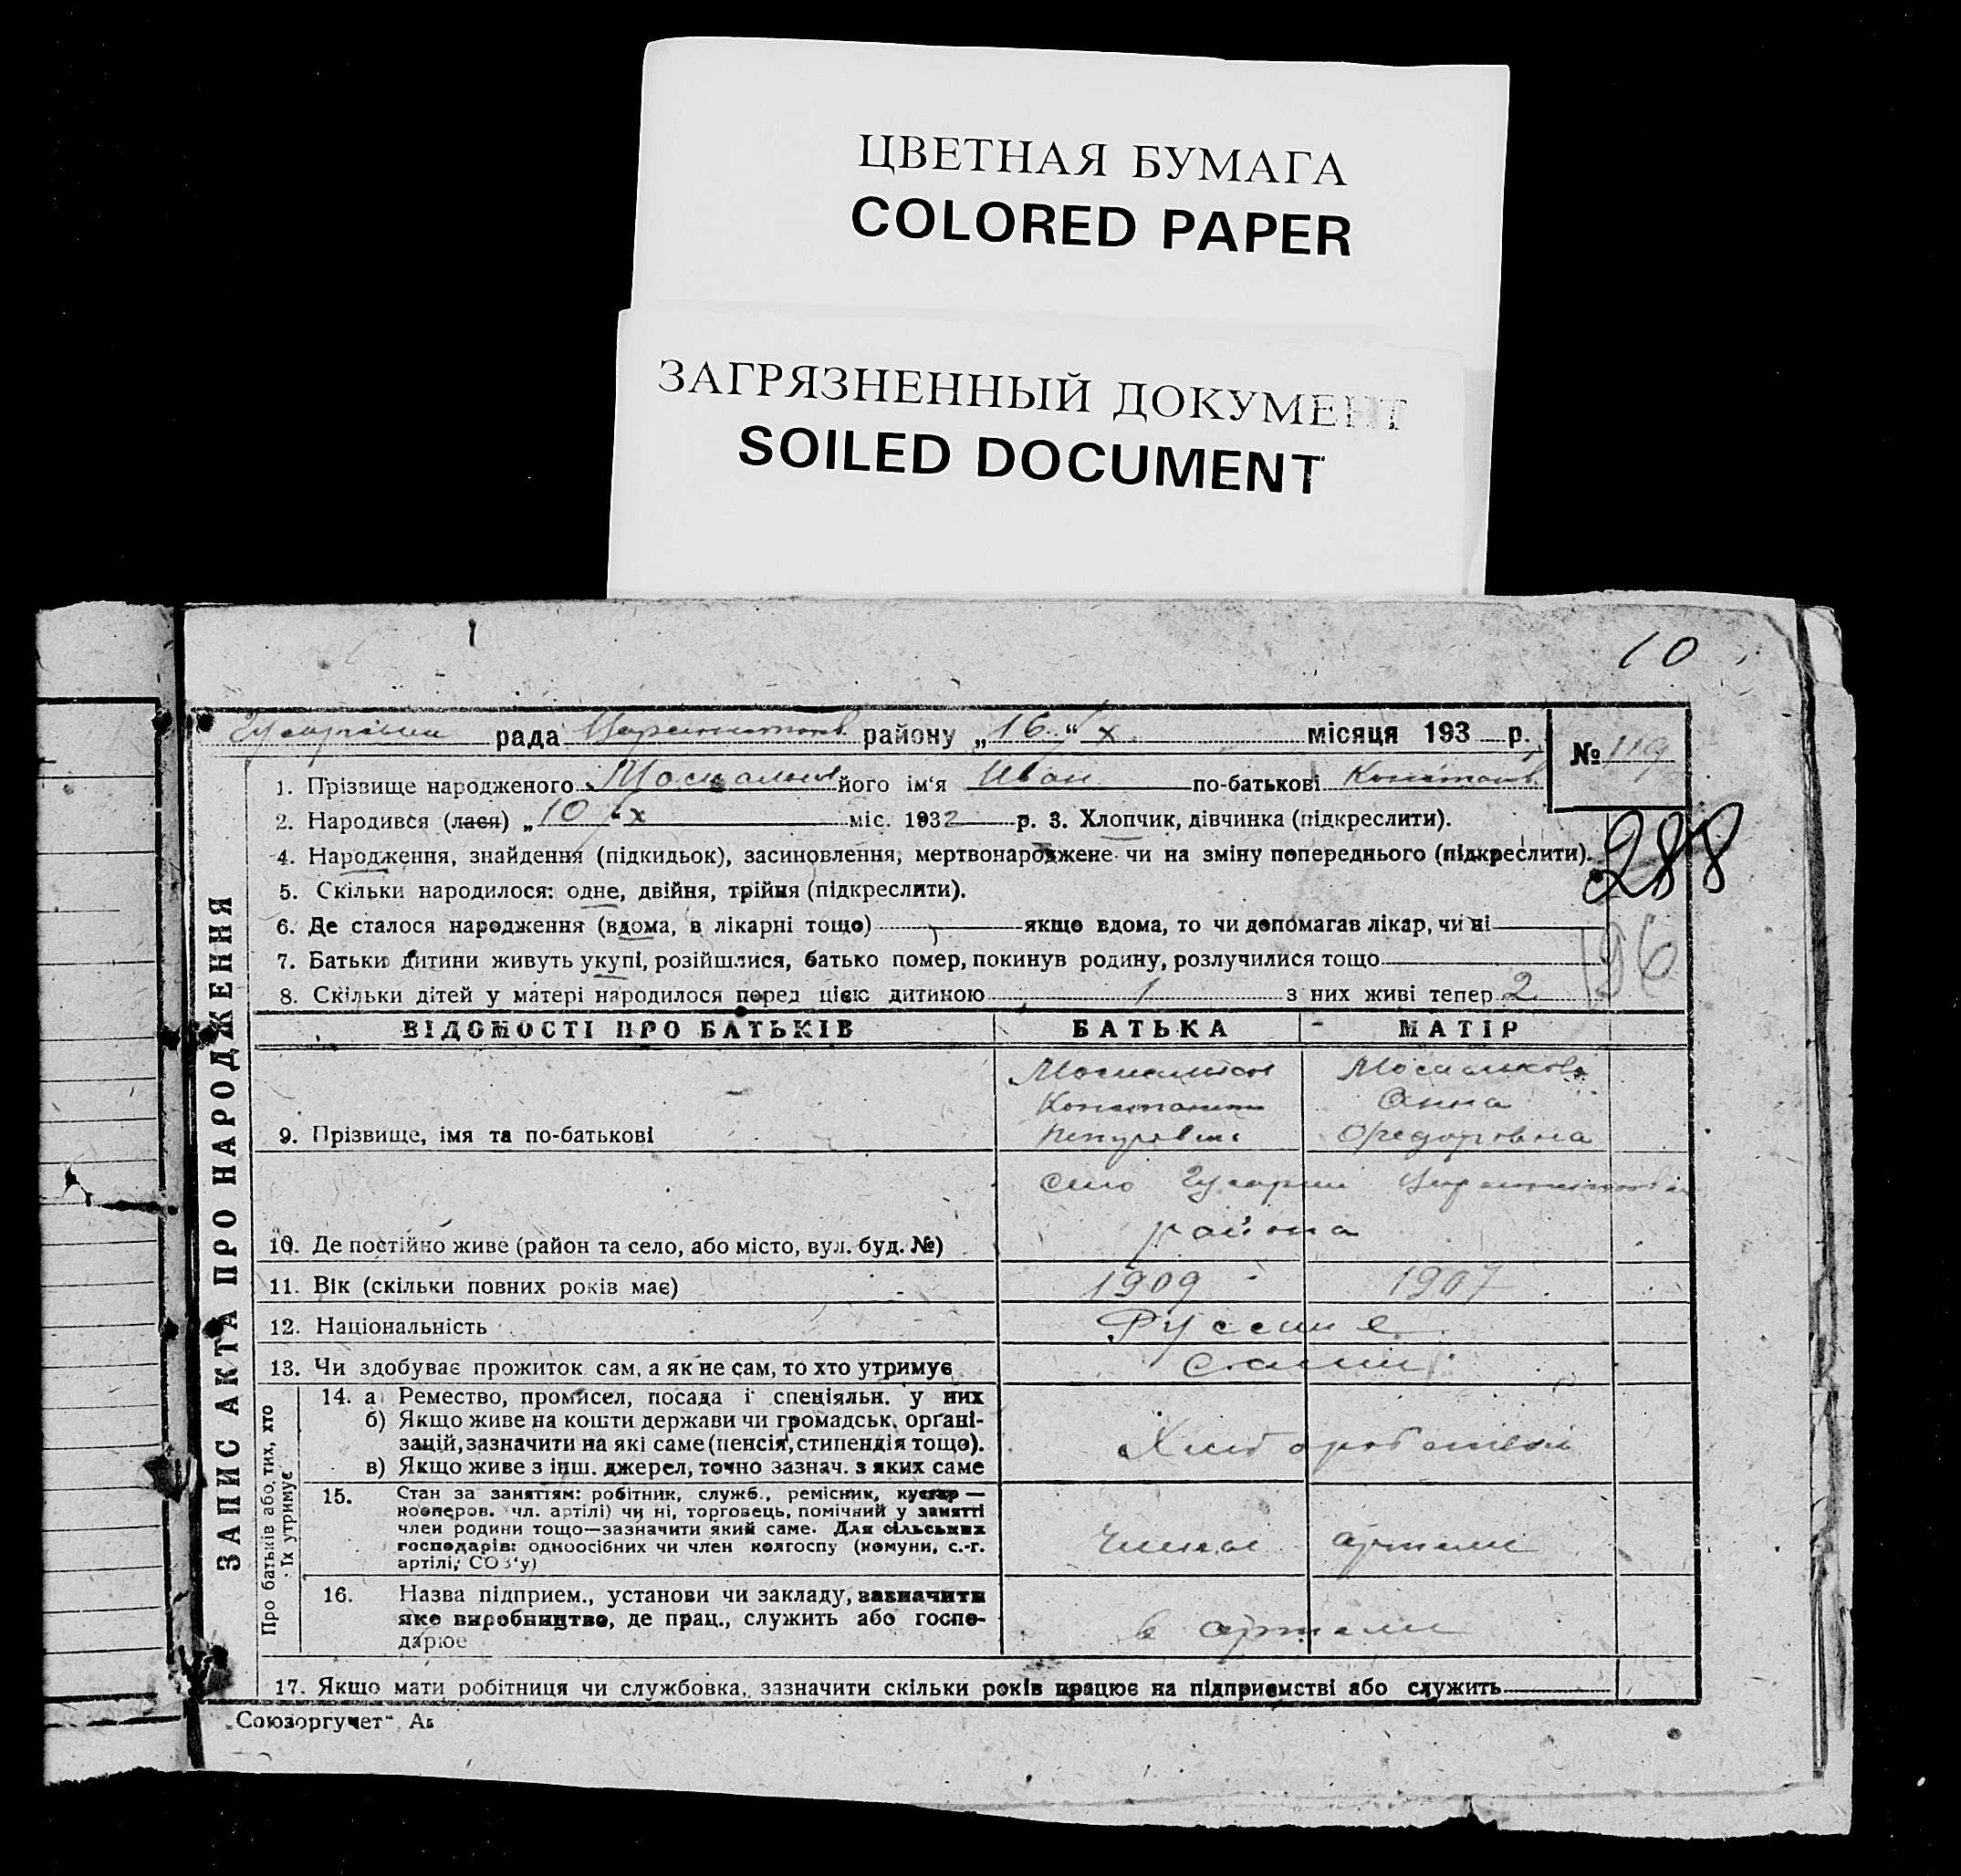 ЦВЕТНАЯ БУМАГА
COLORED PAPER
ЗАГРЯЗНЕННЫЙ ДОКУМЕНТ
SOILED DOCUMENT
10
рада района району „16“ X місяця 193 р.
№ 119
1. Прізвище народженого його ім‘я Иван по-батькові Констант
2. Народився (лася) „10“ X міс. 1932 р. 3. Хлопчик, дівчинка (підкреслити).
288
4. Народження, знайдення (підкидьок), засиновлення, мертвонароджене чи на зміну попереднього (підкреслити).
5. Скільки народилося: одне, двійня, трійня (підкреслити).
6. Де сталося народження (вдома, в лікарні тощо) якщо вдома, то чи допомагав лікар, чи ні
196
7. Батьки дитини живуть укупі, розійшлися, батько помер, покинув родину, розлучилися тощо
8. Скільки дітей у матері народилося перед цією дитиною 1 з них живі тепер 2
ЗАПИС АКТА ПРО НАРОДЖЕННЯ
ВІДОМОСТІ ПРО БАТЬКІВ БАТЬКА МАТІР
Константин Анна
9. Прізвище, імя та по-батькові Федоровна
село
района
10. Де постійно живе (район та село, або місто, вул. буд. №)
11. Вік (скільки повних років має) 1909 1907
12. Національність Руссние
13. Чи здобуває прожиток сам, а як не сам, то хто утримує сами
Про батьків або, тих, хто
їх утримує
14. а) Ремество, промисел, посада і спеціяльн. у них
б) Якщо живе на кошти держави чи громадськ. органі-
зацій, зазначити на які саме (пенсія, стипендія тощо).
в) Якщо живе з інш. джерел, точно зазнач. з яких саме
15. Стан за заняттям: робітник, служб., ремісник, кустар —
кооперов. чл. артілі) чи ні, торговець, помічний у занятті
член родини тощо—зазначити який саме. Для сільських
господарів: одноосібних чи член колгоспу (комуни, с.-г.
артілі, СОЗ‘у)
члены артели
16. Назва підприєм., установи чи закладу, зазначити
яке виробництво, де прац., служить або госпо-
дарює
в артели
17. Якщо мати робітниця чи службовка, зазначити скільки років працює на підприємстві або служить
„Союзоргучет“